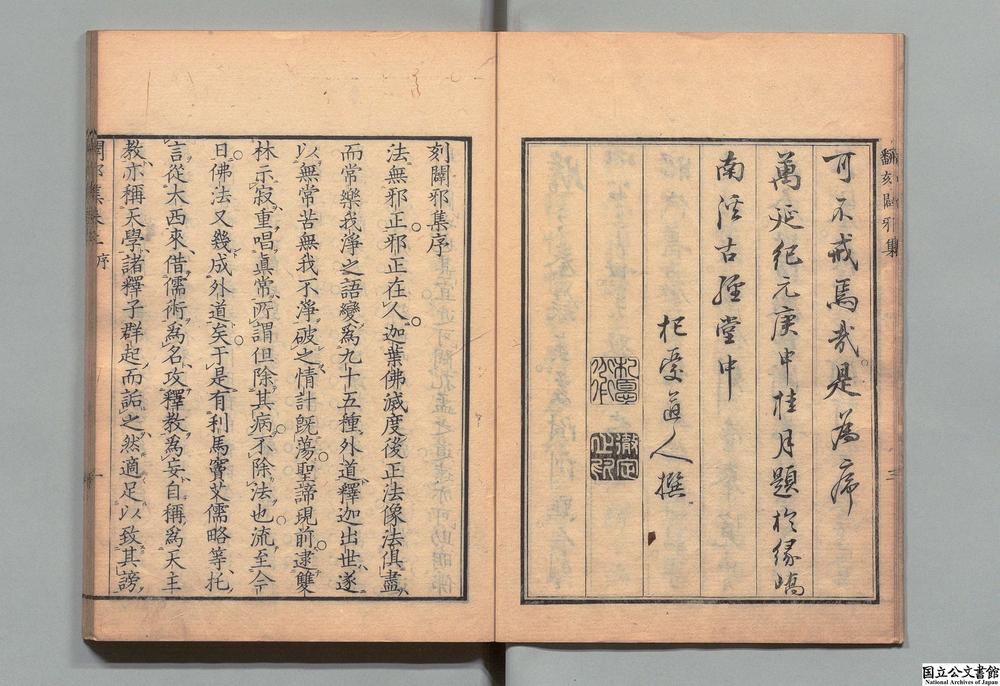 翻刻闢邪集
三
可不戒焉哉是為序
萬延紀元庚申桂月題於緣嶠
南溪古經堂中
杞憂道人撰
刻闢邪集序
法無邪正邪正在人迦葉佛滅度後正法像法俱盡
而常樂我淨之語變爲九十五種外道釋迦出世遂
以無常苦無我不淨破之情計旣蕩聖諦現前逮雙
林示寂重唱眞常所謂但除其病不除法也流至今
日佛法又幾成外道矣于是有利馬竇艾儒略等托
言從大西來借儒術爲名攻釋教爲妄自稱爲天主
教亦稱天學諸釋子群起而詬之然適足以致其謗
闢邪集卷上序
一
国立公文書館
National Archives of Japan